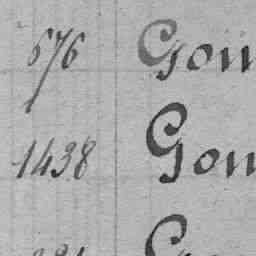 576 Gou
1438 Gou